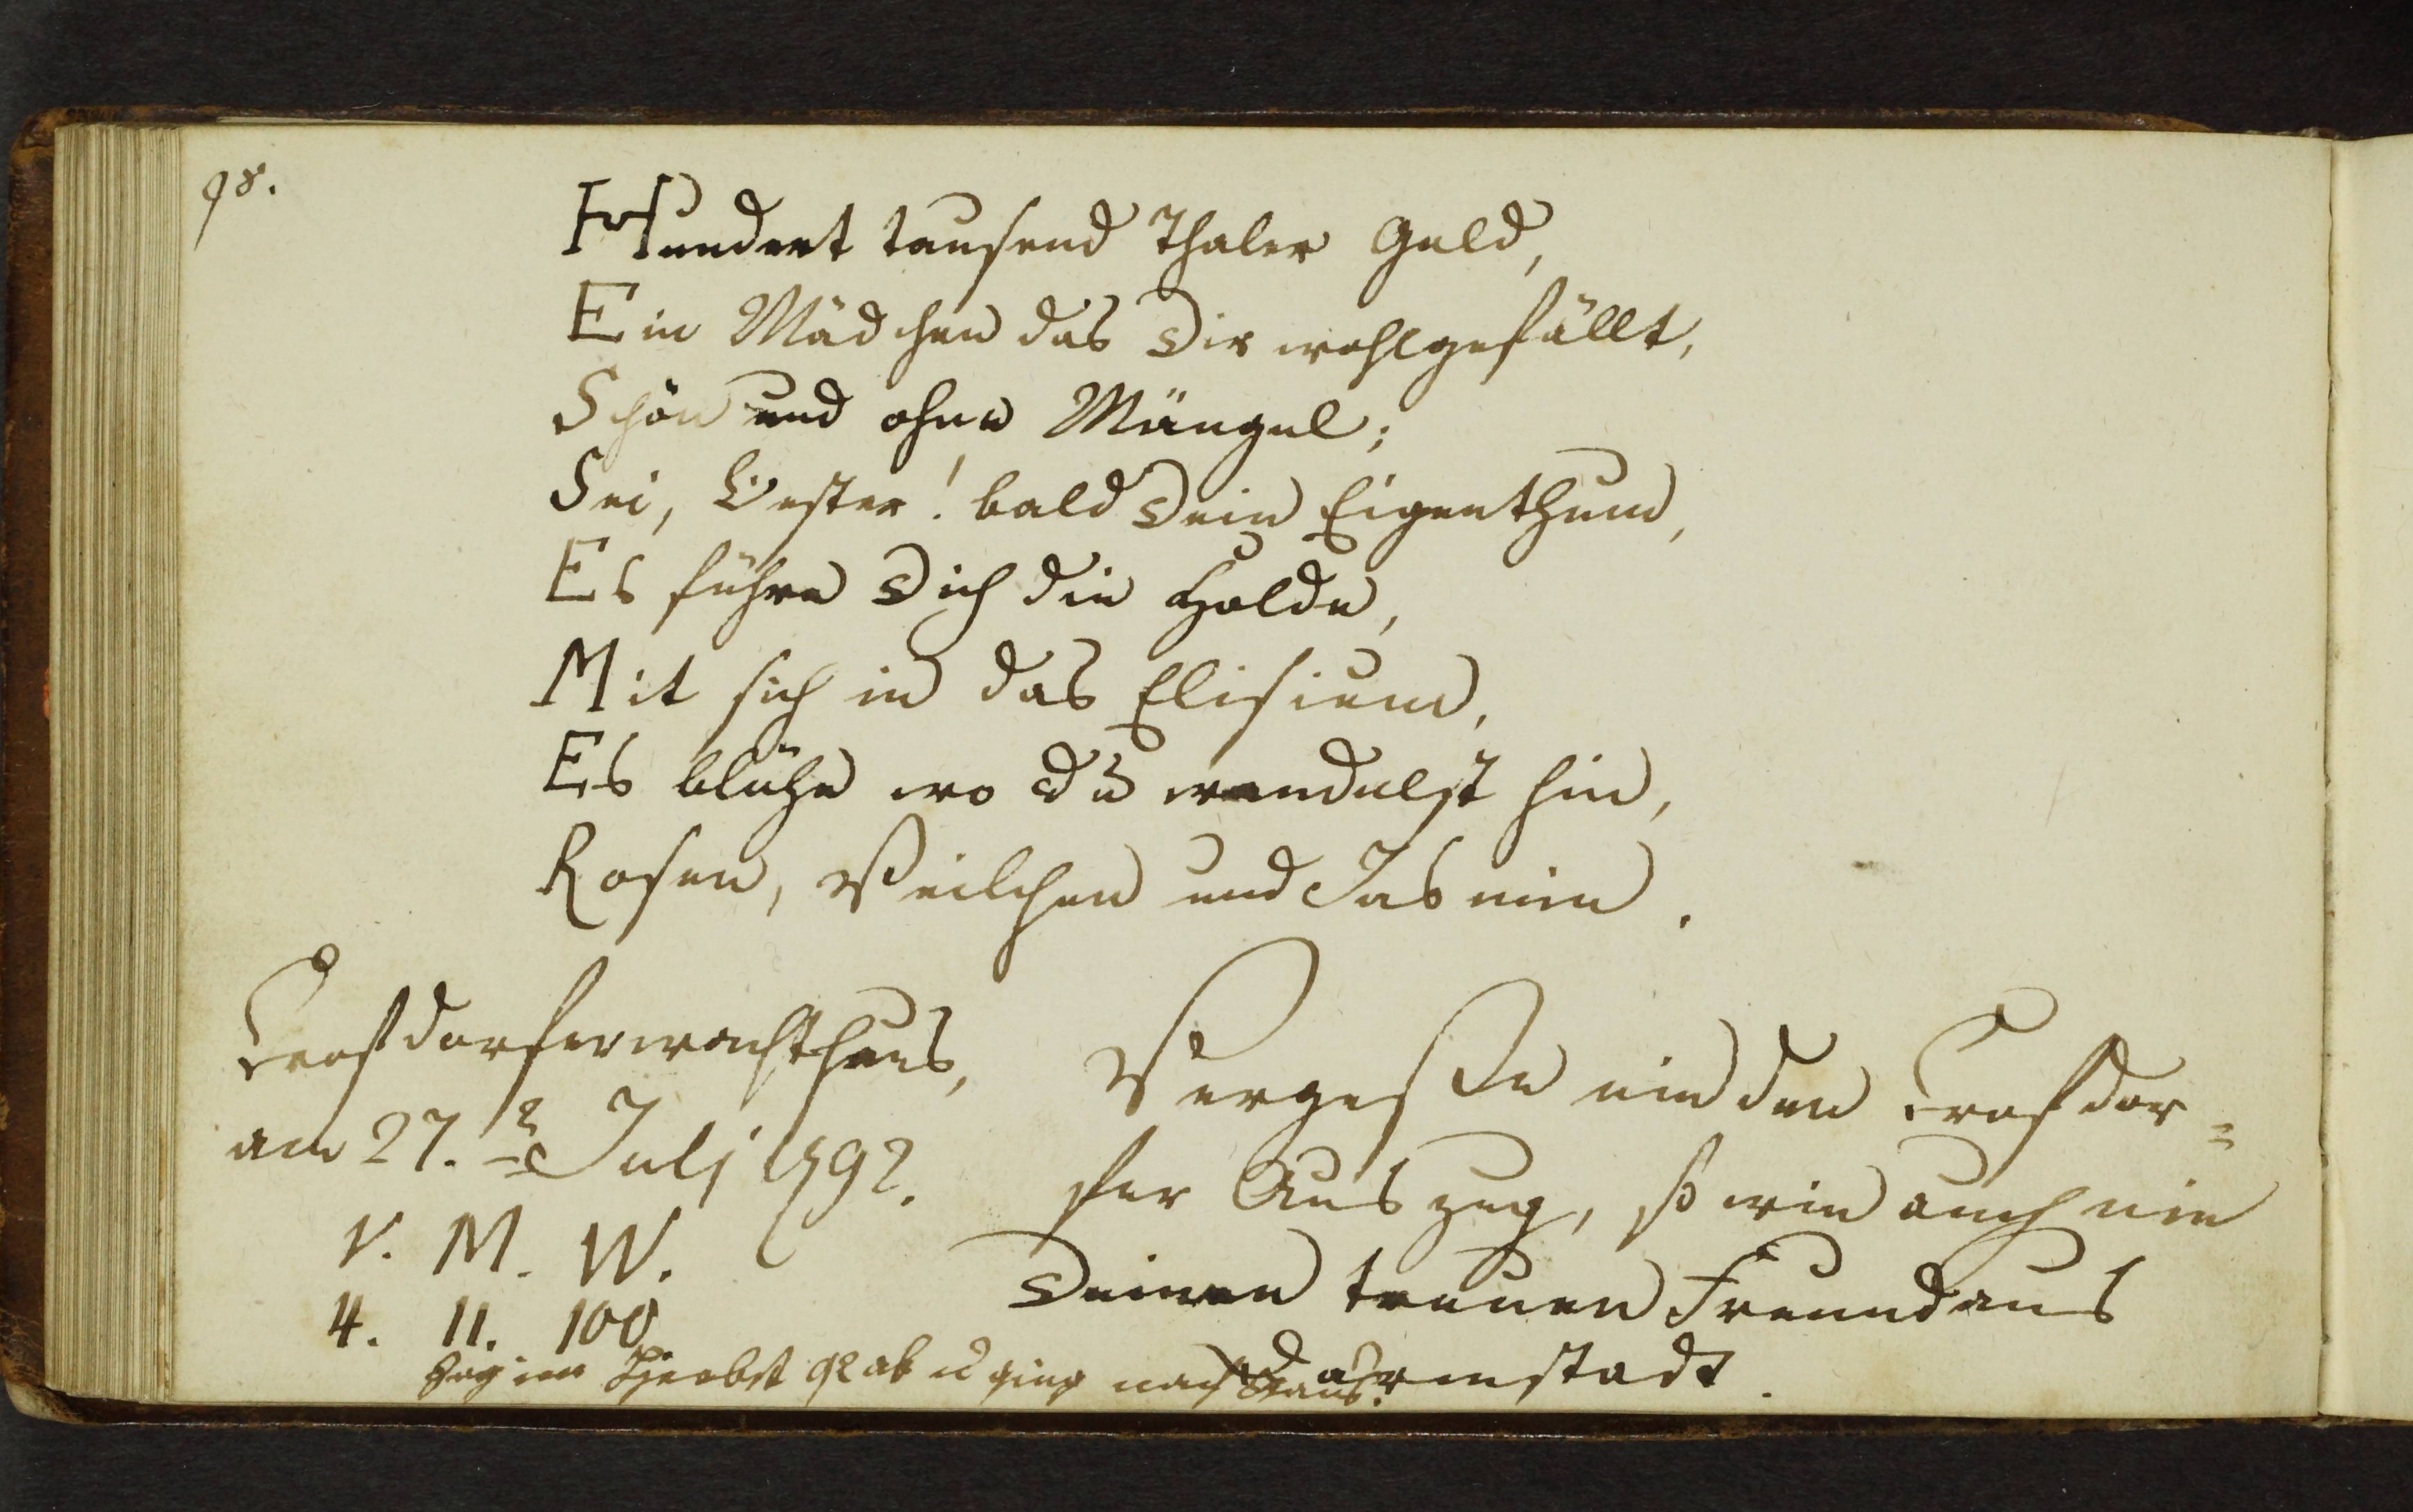 98.
Hundert tausend Thaler Geld,
Ein Mädchen das Dir wohlgefällt,
Schön und ohne Mängel;
Sei, Bester! bald Dein Eigenthum,
Es führe Dich die Holde,
Mit sich in das Elisium,
Es blühe wo Du wandelst hin,
Rosen, Veilchen und Jasmin.
Crofdorferwachthaus,
am 27. Julj 1792.
V. M. W.
4. 11. 100
Vergesse nie den Crofdor=
fer Auszug, so wie auch nie
Deinen treuen Freund aus
Darmstadt.
Zog im Herbst 92 ab u ging nach Haus.